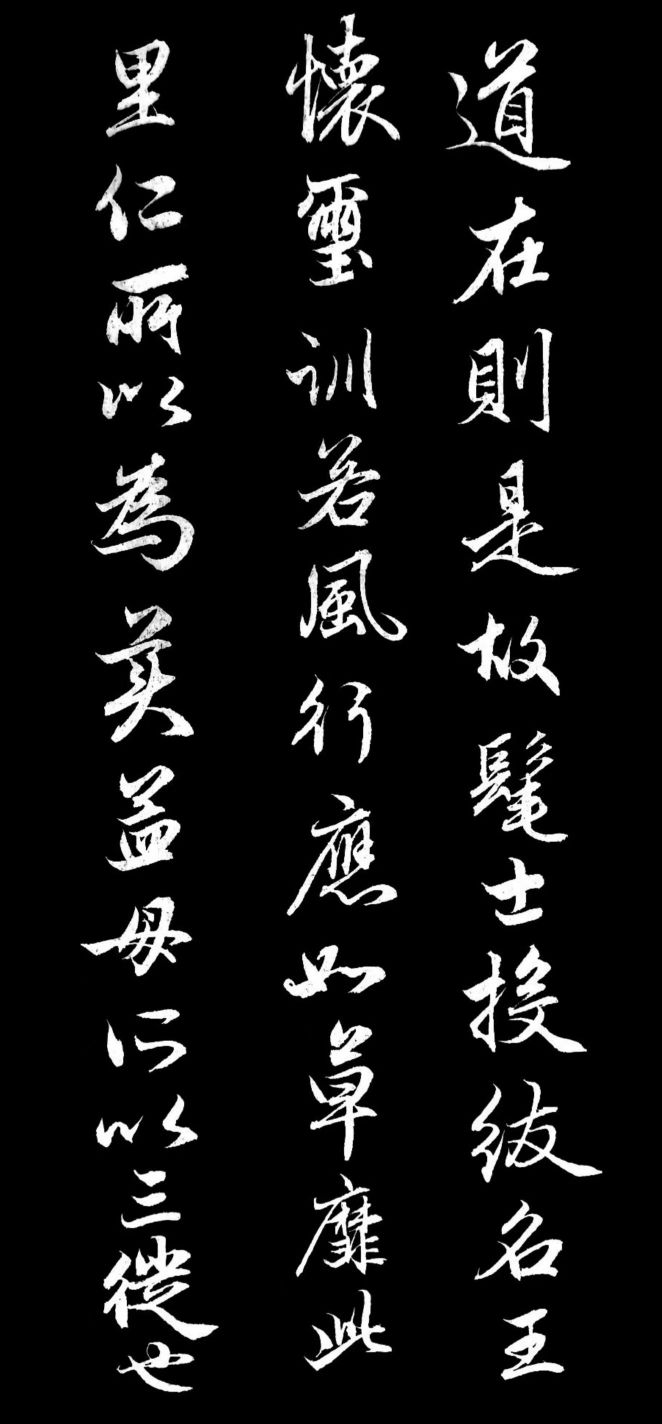 道在則是故髦士投紱名王
懷璽訓若風行應如草靡此
里仁所以為美孟母所以三徙也